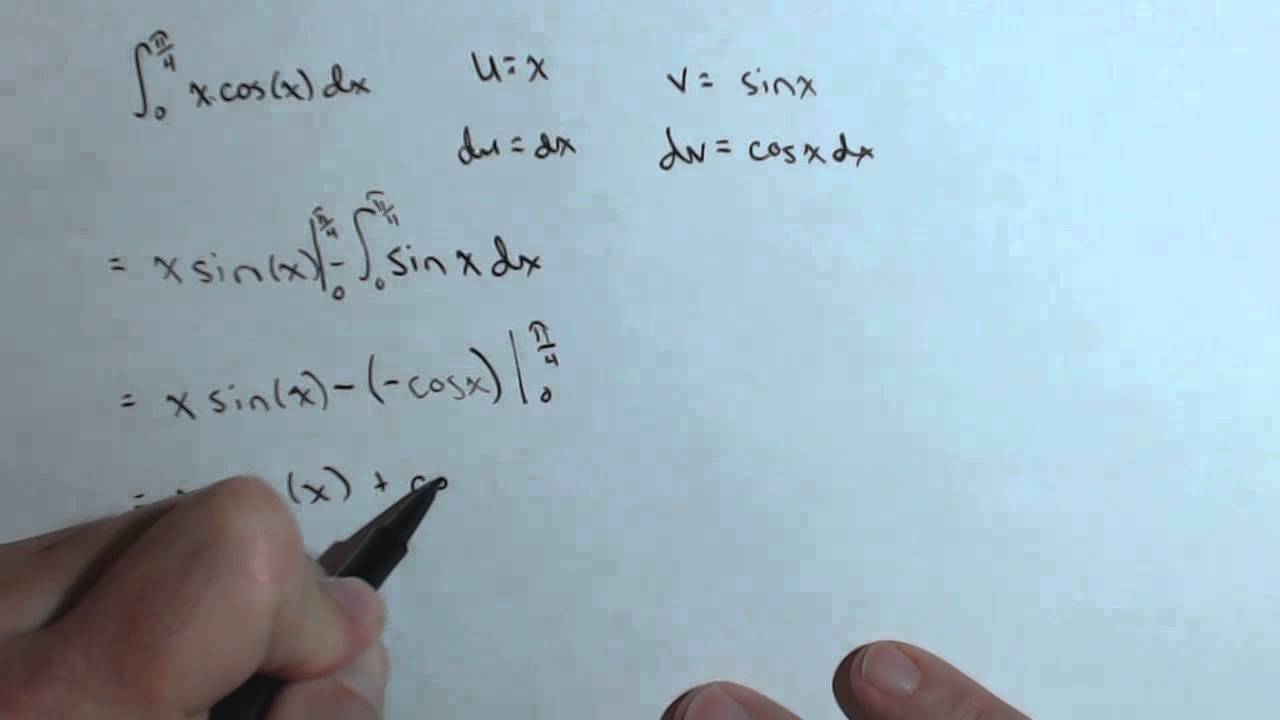 ∫₀^{π/4} x cos(x) dx u = x v = sinx
du = dx dv = cosx dx
= x sin(x)|₀^{π/4} - ∫₀^{π/4} sin x dx
= x sin(x) - (-cosx) |₀^{π/4}
= (x) + co